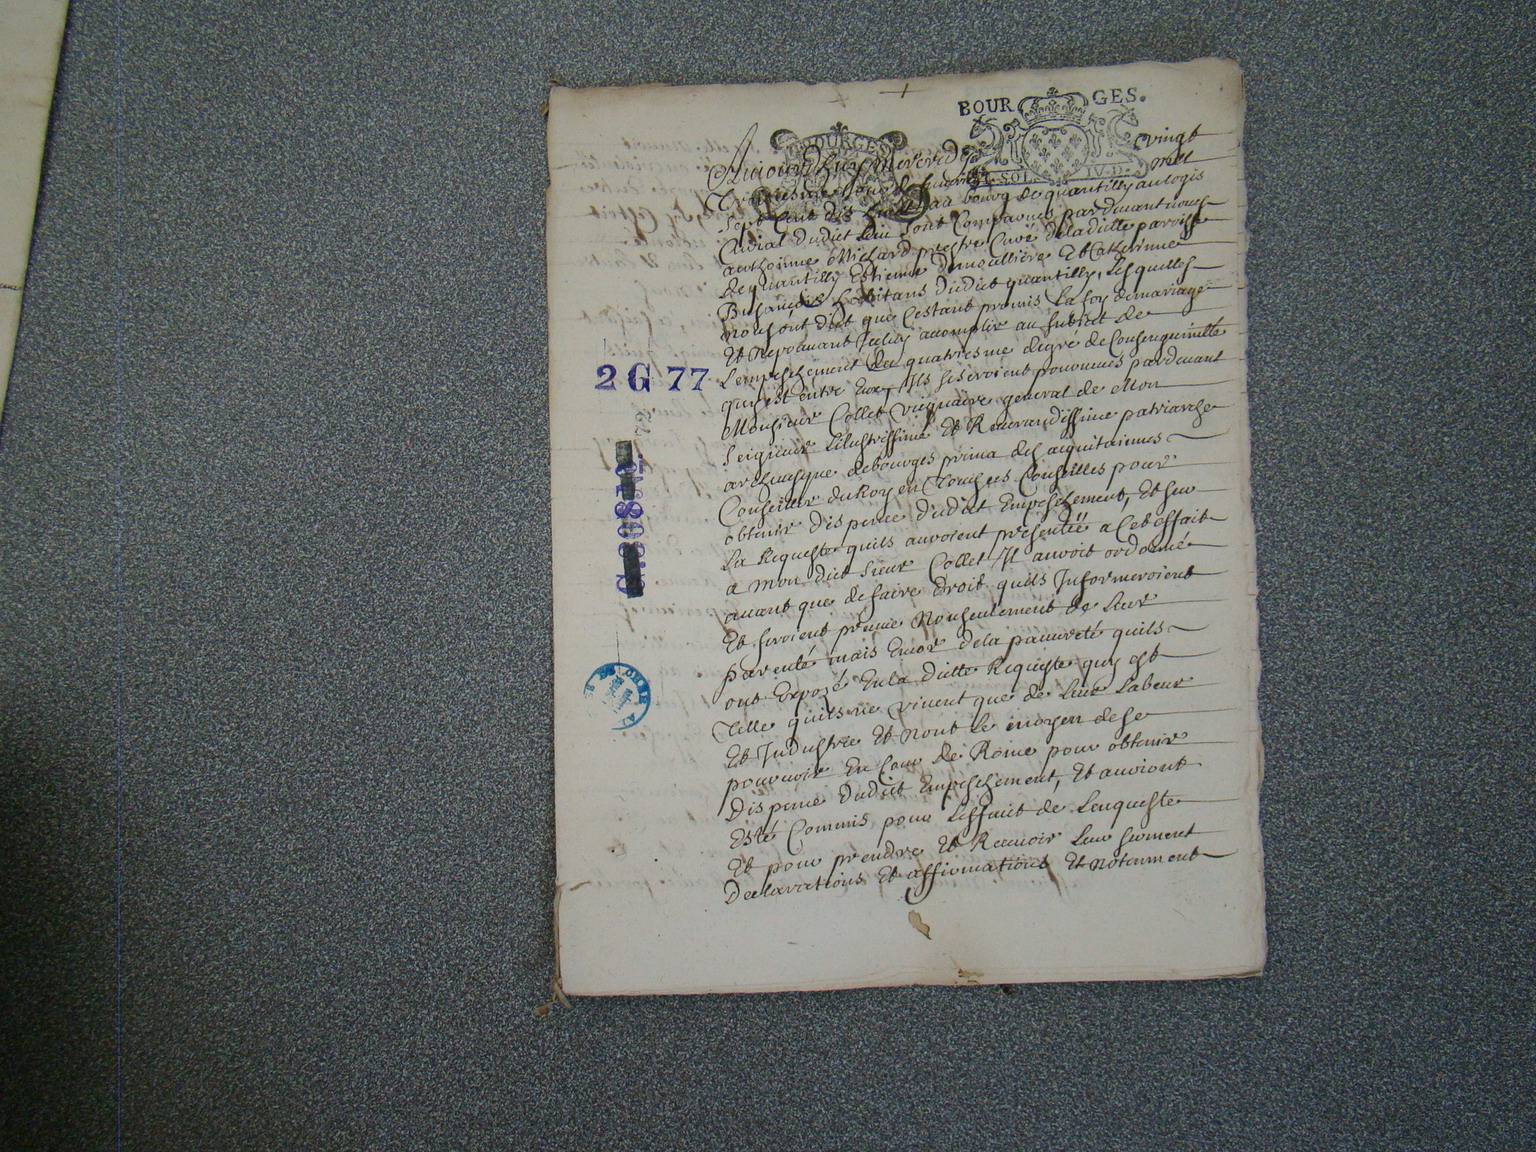 BOURGES.
BOURGES
SOL IV. D.
Aujourdhuy Mercredy vingt
Troisiesme Jour de feuvrier mil
Sept Cent dix huit au bourg de quantilly au logis
Curial dudict lieu Sont Comparus pardevant nous
anthoinne Michard prestre Curé deladitte paroisse
de quantilly Estienne Et Catherinne
habitans dudict quantilly, Lesquelles
nous ont dict que Cestant promis La foy de mariage
Et Ne pouvant Icelluy acomplir au subiect de
Lempeschement du quatriesme degré de Consenguinitté
quy est entre Eux, Ils se seroient pourvues pardevant
Monsieur Collet Vicquaire general de Mon
Seigneur Lilustrissime Et Reverandissime patriarche
archevesque debourges prima des acquitaiennes
Conseiller du Roy en Tous ses Conseilles pour
obtenir dispence dudict Empeschement, Et sur
La Requeste quils auroient présentée a Cet effait
a Mon dict Sieur Collet Il auroit ordonné
avant que de faire droit quils Informeroient
Et feroient preuve Nonseulement de Leur
parenté mais Encor dela pauvreté quils
ont Expozé En la ditte Requeste quy est
Telle quils ne vivent que de Leur Labeur
Et Industrie Et nont Le moyen de se
pourvoir En Cour de Rome pour obtenir
dispence dudict Empeschement, Et aurions
Esté Commis pour Leffaict de Lenqueste
Et pour prendre Et Recevoir Leur serment
Declarations Et affirmations Et notamment
2 G 77
72
CHER